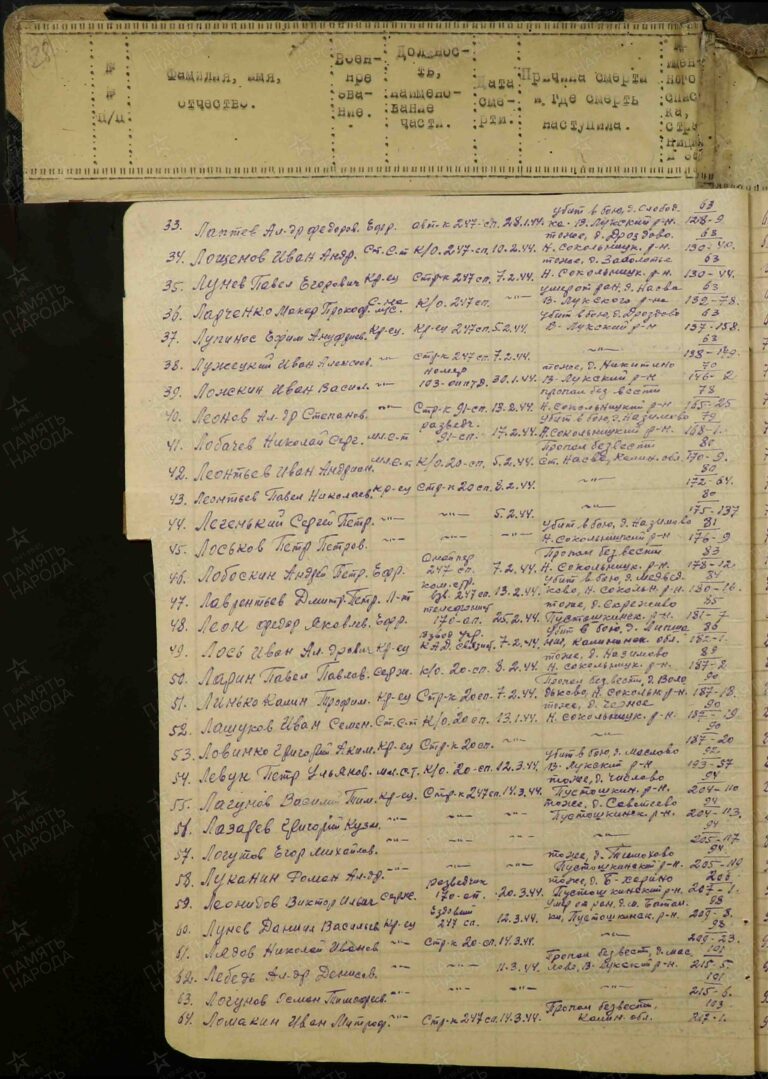 № № п/п Фамилия, имя, отчество. Воен- ное зва- ние. Должнос- ть, наимено- вание части. Дата сме- рти. Причина смерти и где смерть наступила. № имен- ного спис- ка, стра- ницы
33. Лаптев Ал-др Федоров. Ефр. 247-сп. 28.1.44. убит в бою, д. Слобод- ка В. Лукский р-н. 63 128-9
34. Лощенов Иван Андр. Ст. с-т К/о. 247-сп. 10.2.44. тоже, д. Дроздово Н. Сокольницк. р-н 63
35. Лунев Павел Егорович Кр-ец Стр-к 247сп. 7.2.44. тоже, д. Заболотье Н. Сокольницк. р-н. 63 130-44.
36. Ларченко Макар Прокоф. К/о. 247сп. -"- умер от ран, д. Насва В. Лукского р-на 63 132-78.
37. Лупинос Ефим Ануфриев. Кр-ец. Кр-ец 247сп. 5.2.44. убит в бою, д. Дроздово В-Лукский р-н 63 137-158.
38. Лужецкий Иван Алексеев. -"- стр-к 247сп. 7.2.44. -"- 63 138-179.
39. Ложкин Иван Васил. -"- номер 103- 30.1.44. тоже, д. Никитино В-Лукский р-н 70 146-2
40. Леонов Ал-др Степанов. -"- Стр-к 91-сп. 13.2.44. пропал без вести Н. Сокольницкий р-н 78 165-25
41. Лобачев Николай Серг. мл. с-т разведч. 91-сп. 17.2.44. Убит в бою, д. Назимово Н. Сокольницкий р-н. 79 168-1.
42. Леонтьев Иван мл. с-т К/о. 20-сп. 5.2.44. Пропал без вести Ст. Насва, Калин. обл. 80 170-9.
43. Леонтьев Павел Николаев. Кр-ец Стр-к 20сп. 8.2.44. -"- 80 172-64.
44. Легенький Сергей Петр. -"- -"- 5.2.44. -"- 80 175-137
45. Лоськов Петр Петров. -"- -"- -"- Убит в бою, д. Назимово Н. Сокольницкий р-н 81 176-9
46. Лобоскин Андрей Петр. Ефр. Снайпер 247 сп. 7.2.44. Пропал без вести Н. Сокольницк. р-н. 83 178-12.
47. Лаврентьев Дмитр. Петр. Л-т ком. стр. взв. 247сп. 13.2.44. Убит в бою, д. Медвед- ково, Н. Сокольн. р-н. 84 180-16.
48. Леон Федор Яковлев. Ефр. телефонист 170-ап. 25.2.44. тоже, д. Пустошкинск. р-н 85 181-7
49. Лось Иван Ал-дрович Кр-ец 7.2.44. Убит в бою, д. Калининск. обл. 86 182-1.
50. Ларин Павел Павлов. Серж. К/о. 20-сп. 8.2.44. тоже, д. Назимово Н. Сокольницк. р-н 89 187-2.
51. Линько Калин Трофим. Кр-ец Стр-к 20сп. 7.2.44. Пропал без вести, д. Воло- дьково, Н. Сокольн. р-н. 90 187-18.
52. Лашуков Иван Семен. Ст. с-т К/о. 20сп. 13.1.44. тоже, д. Черное Н. Сокольницк. р-н. 90 187-19.
53. Ловинко Григорий Яким. Кр-ец Стр-к 20сп. -"- -"- 90 187-20
54. Левук Петр Ульянов. мл. с-т. К/о. 20-сп. 12.3.44. Убит в бою, д. Маслово В. Лукский р-н. 92 193-37
55. Лагунов Василий Тим. Кр-ец. Стр-к 247сп. 14.3.44. тоже, д. Числово Пустошкин. р-н. 94 204-110
56. Лазарев Григорий Кузм. -"- -"- -"- тоже, д. Пустошкинск. р-н. 94 204-113.
57. Логутов Егор Михайлов. -"- -"- -"- -"- 94 205-117
58. Луканин Роман Ал-др. -"- -"- -"- тоже, д. Тимохово Пустошкинский р-н. 94 205-119
59. Леонидов Виктор Ильич Серж. разведчик 170-ап. 20.3.44. тоже, д. Пустошкинский р-н. 207-1.
60. Лунев Даниил Васильев Кр-ец Ездовый 247 сп. 12.3.44. Умер от ран, д. М. Пустошкинск. р-н. 98 209-8.
61. Лядов Николай Иванов. -"- Стр-к 20-сп. 14.3.44. -"- 98 209-23.
62. Лебедь Ал-др Денисов. -"- -"- 11.3.44. Пропал без вест., д. Мас- лово, В. Лукский р-н. 101 215-5.
63. Логунов Семен Тимофеев. -"- -"- -"- -"- 101 215-6.
64. Ломакин Иван Митроф. -"- Стр-к 247сп. 14.3.44. Пропал без вести. Калин. обл. 103 217-1.
ПАМЯТЬ НАРОДА